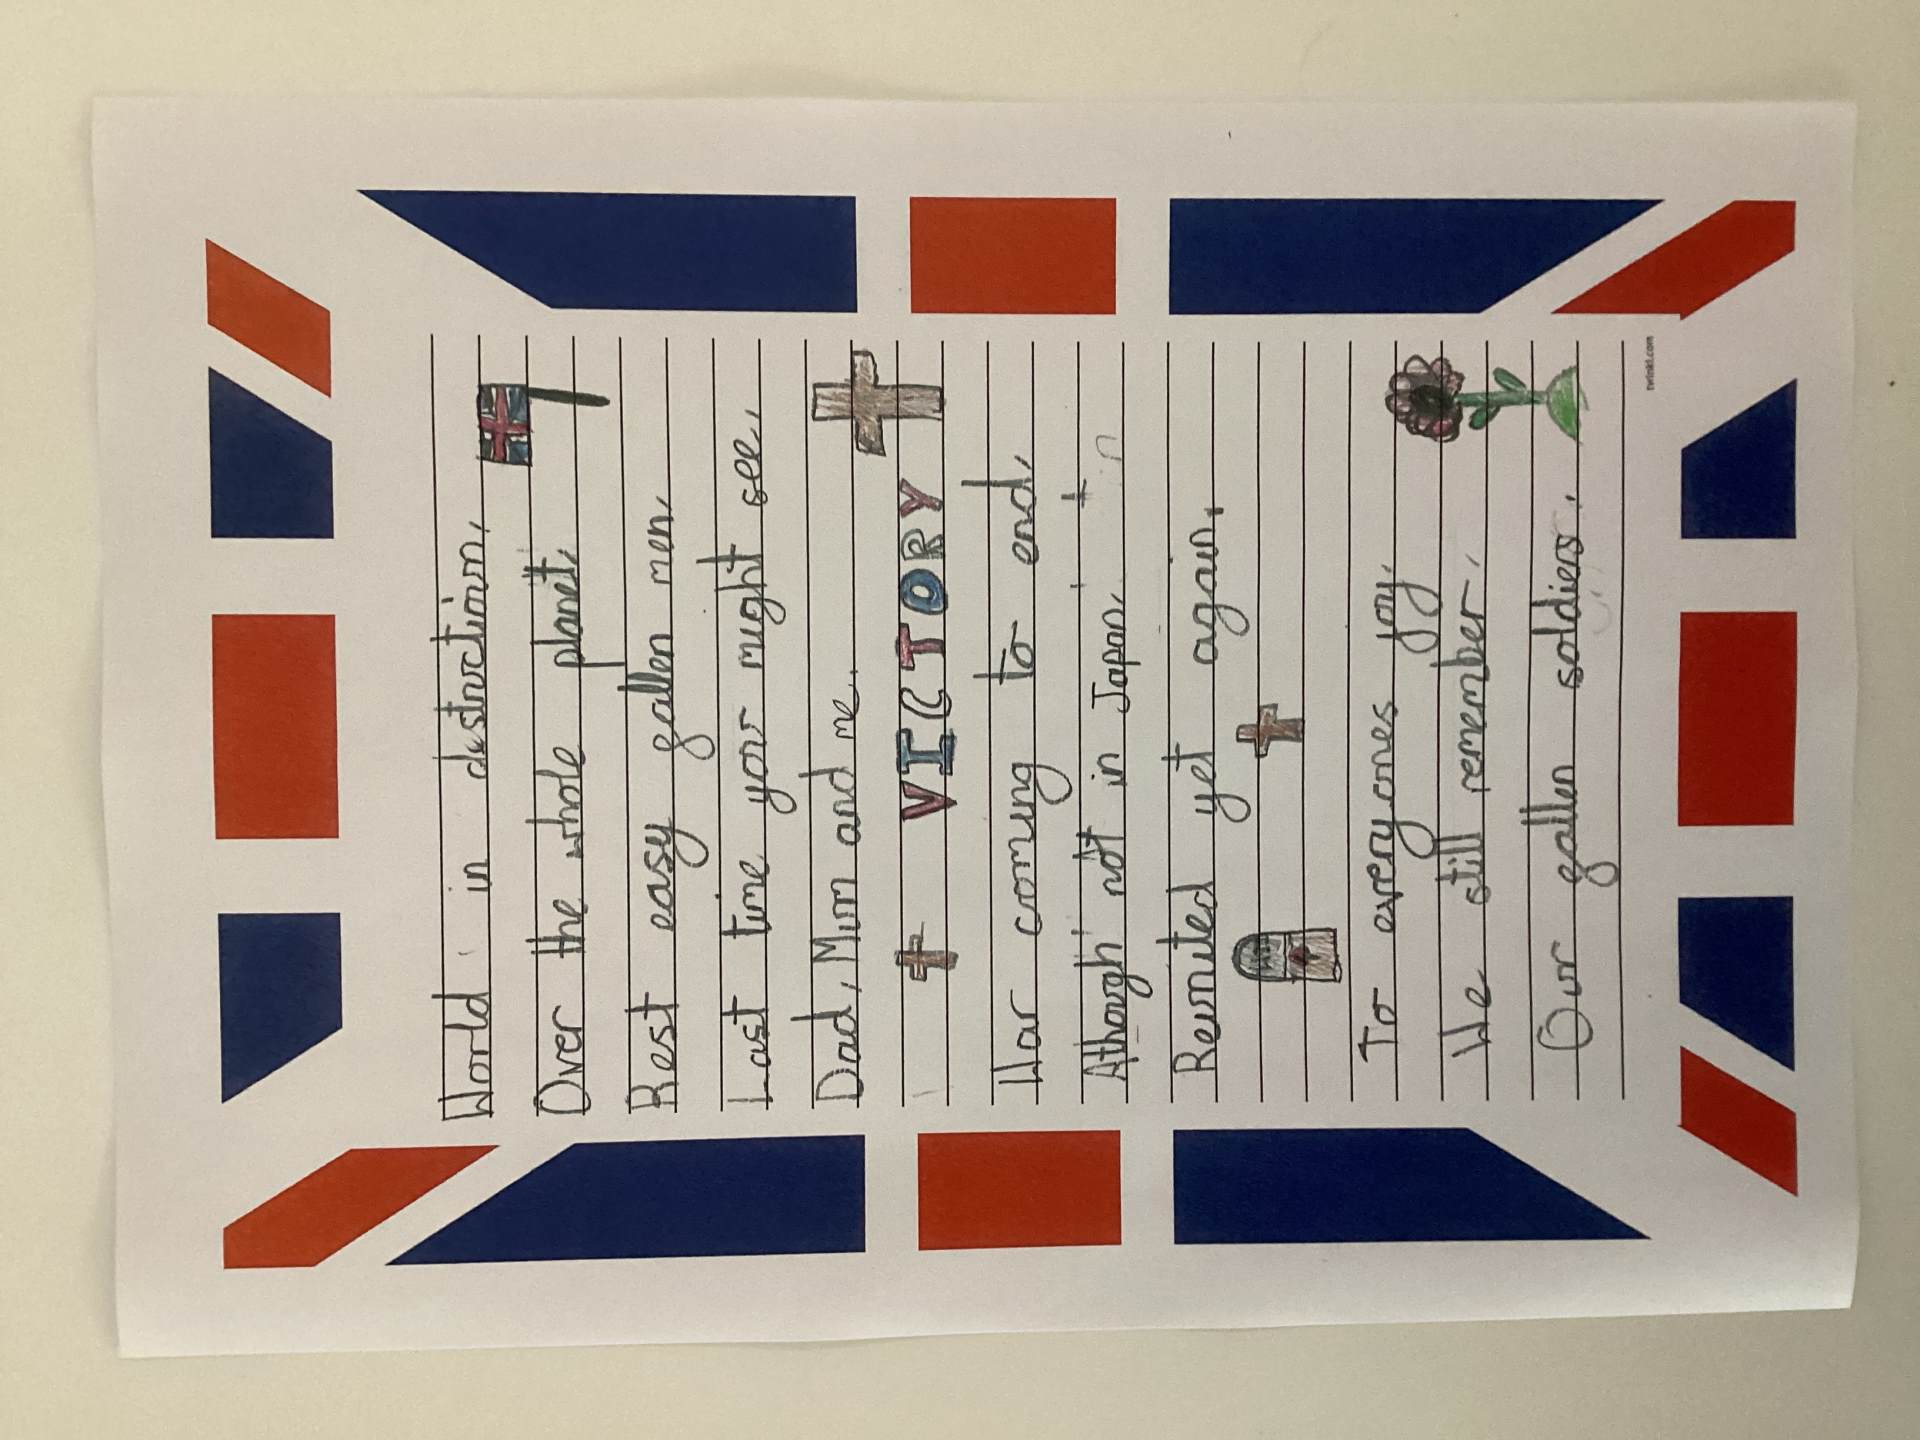 World in destruction,
Over the whole planet,
Rest easy fallen men,
Last time your might see,
Dad, Mum and me.
VICTORY
War coming to end,
Athough not in Japan,
Reunited yet again,
To everyones joy,
We still remember,
Our fallen soldiers.
twinkl.com